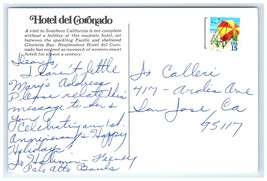 Hotel del Coronado
A visit to Southern California is not complete
without a holiday at this majestic hotel, set
between the sparkling Pacific and sheltered
Glorietta Bay. Resplendent Hotel del Coro-
nado has reigned as monarch of western resort
hotels for almost a century.
USA
15
Dear Jo,
I haven't little
Mary's Address
Please relate this
message to her &
you
Celebrating an 1st
Anniversary. Happy
Holidays
Jo
Palo Alto Banks
Jo Calleri
417 - Ave
San Jose, Ca
95117